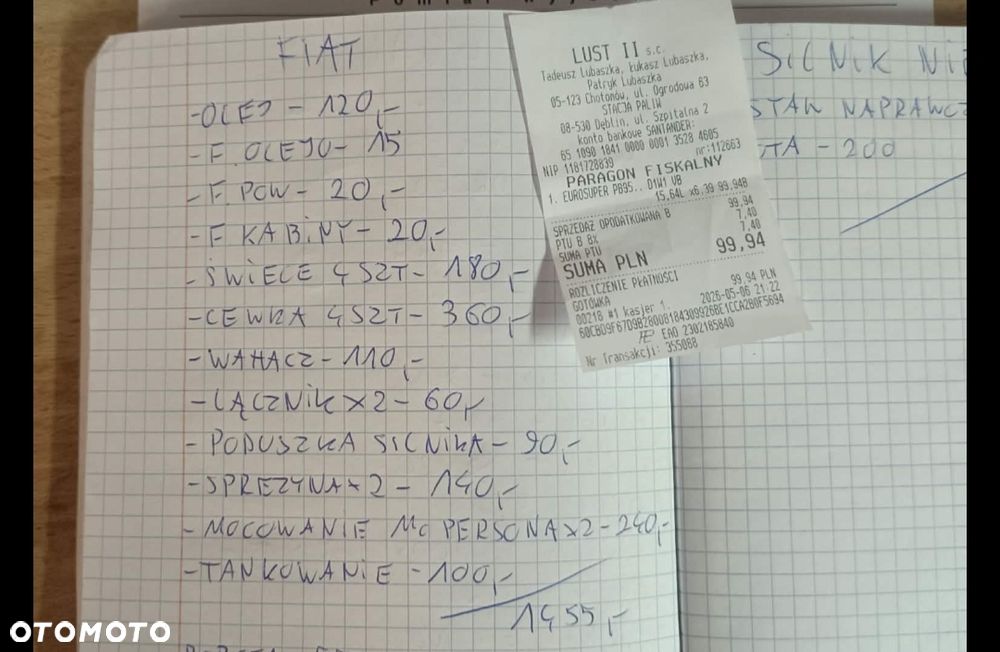 FIAT
-OLEJ - 120,-
-F. OLEJU - 15
-F. POW - 20,-
-F. KABINY - 20,-
-ŚWIECE 4SZT - 180,-
-CEWKA 4SZT - 360,-
-WAHACZ - 110,-
-ŁĄCZNIK x2 - 60,-
-PODUSZKA SILNIKA - 90,-
-SPREZYNA x2 - 140,-
-MOCOWANIE Mc PERSONA x2 - 240,-
-TANKOWANIE - 100,-
1455,-
LUST II s.c.
Tadeusz Lubaszka, Łukasz Lubaszka,
Patryk Lubaszka
05-123 Chotonów, ul. Ogrodowa 63
STACJA PALIW
08-530 Dęblin, ul. Szpitalna 2
konto bankowe SANTANDER:
65 1090 1841 0000 0001 3528 4605
NIP 1181728839 nr:112663
PARAGON FISKALNY
1. EUROSUPER PB95.. D1W1 VB
15,64L x6,39 99,94B
SPRZEDAŻ OPODATKOWANA B 99,94
PTU B 8% 7,40
SUMA PTU 7,40
SUMA PLN 99,94
ROZLICZENIE PŁATNOŚCI
GOTÓWKA 99,94 PLN
00218 #1 kasjer 1. 2026-05-06 21:22
EAO 2302185840
Nr Transakcji: 355068
SILNIK
NAPRAWCZ
- 200
OTOMOTO